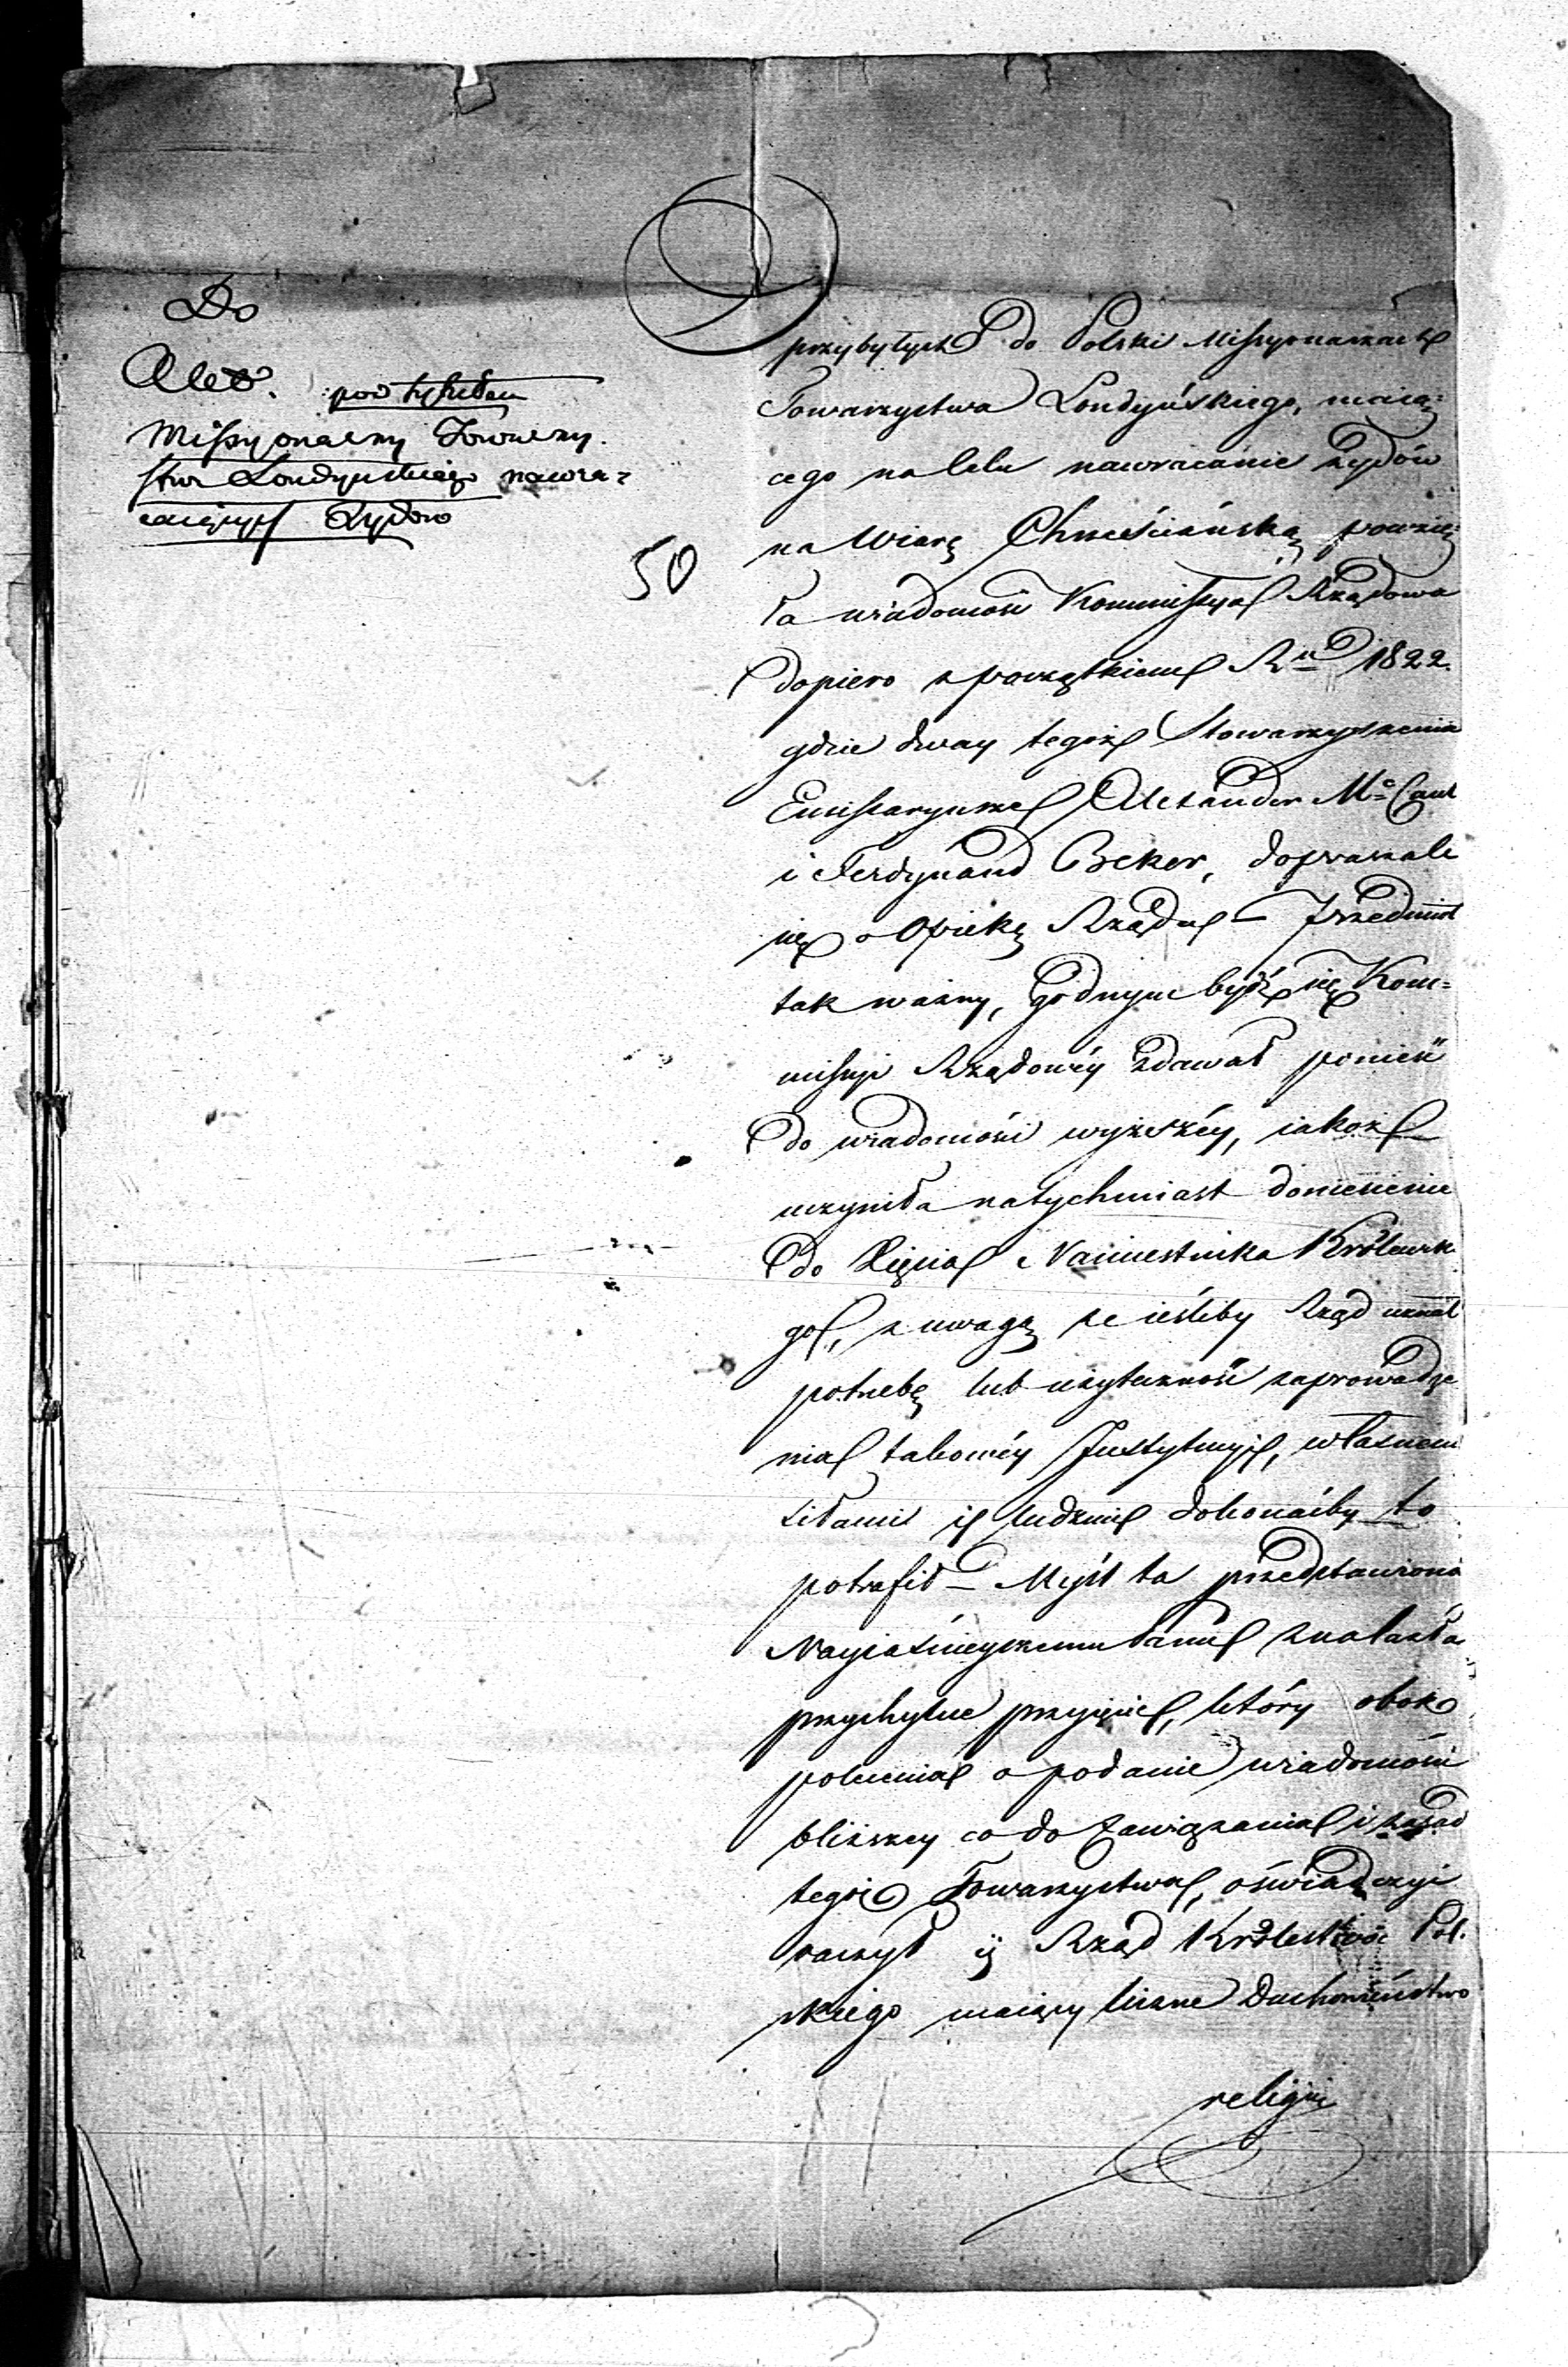 Do
Akt. pod tytułem
Missyonarzy Towarzy.
stwa Londynskiego nawra=
caiących Żydów
50
O
przybyłych do Polski Missyonarzach
Towarzystwa Londyńskiego, maią=
cego na celu nawracanie Żydów
na Wiarę Chrześciańską powzię=
ła wiadomość Kommissya Rządowa
dopiero z początkiem Rku 1822.
gdzie dway tegoż Stowarzyszenia
Emissaryusze Alexander Mc Caul
i Ferdynand Beker, dopraszali
się o Opiekę Rządu – Przedmiot
tak ważny, godnym bydź się Kom=
missyi Rządowéy zdawał ponieść
do wiadomości wyższéy, iakoż
uczyniła natychmiast doniesienie
do Xięcia Namiestnika Królewsk.
go, z uwagą że ieśliby Rząd uznał
potrzebę lub użyteczność zaprowadze
nia takowéy Instytucyi, własnemi
siłami i ludźmi dokonaćby to
potrafił – Myśl ta przedstawiona
Nayiaśnieyszemu Panu znalazła
przychylne przyięcie, który obok
polecenia o podanie wiadomości
bliższey co do zawiązania i zasad
tegoż Towarzystwa, oświadczyć
raczył iż Rząd Królestwa Pol.
skiego maiący liczne Duchowieństwo
religii